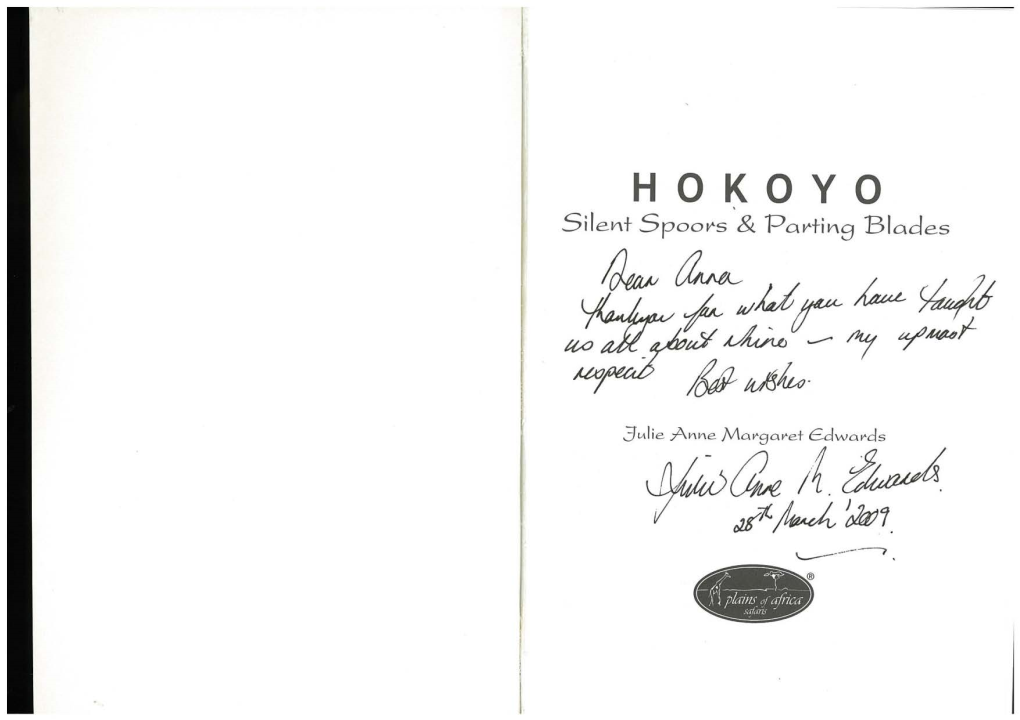 HOKOYO
Silent Spoors & Parting Blades
Dear Anna
thankyou for what you have taught
us all about rhino – my upmost
respect Best wishes.
Julie Anne Margaret Edwards
Julie Anne M. Edwards.
28th March '2009.
plains of africa
safaris
®